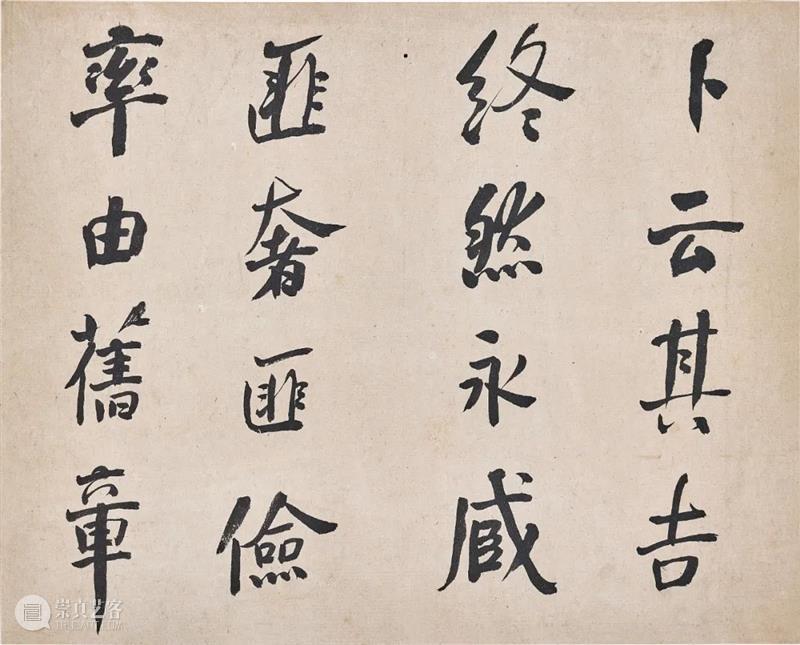 卜云其吉
終然永臧
匪奢匪儉
率由舊章
崇真艺客